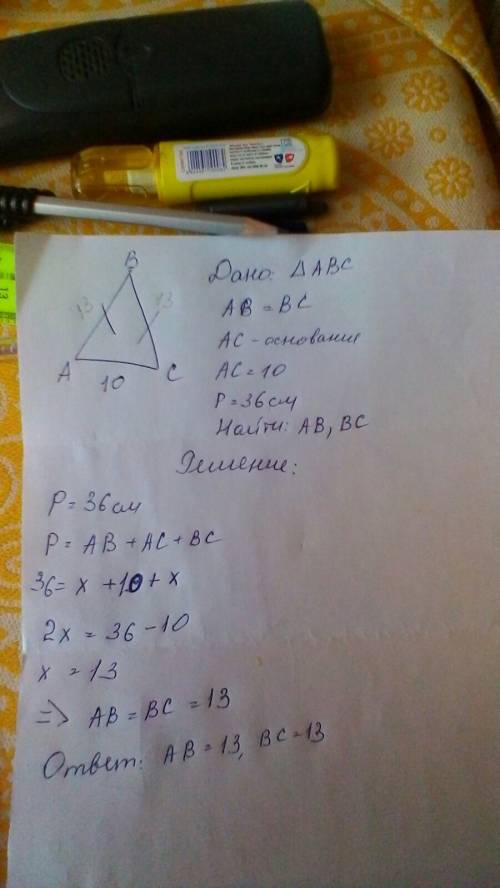 B
13 13
A
10
C
Дано: △ABC
AB = BC
AC - основание
AC = 10
P = 36 см
Найти: AB, BC
Решение:
P = 36 см
P = AB + AC + BC
36 = x + 10 + x
2x = 36 - 10
x = 13
=> AB = BC = 13
Ответ: AB = 13, BC = 13
13